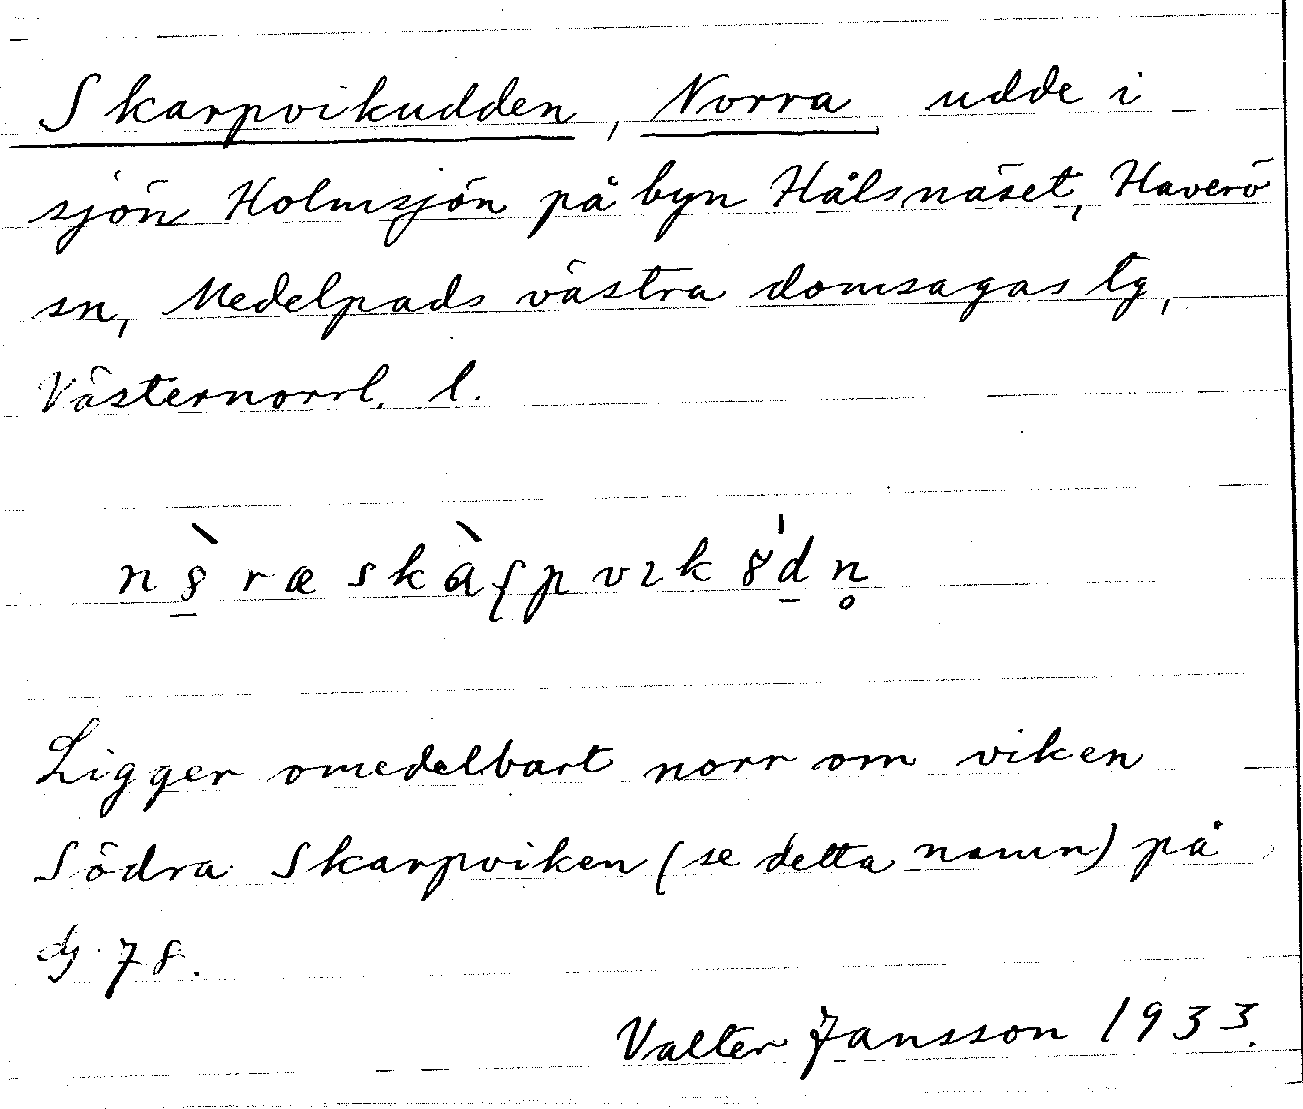 Skarpvikudden, Norra udde i
sjön Holmsjön på byn Hålsnäset, Haverö
sn, Medelpads västra domsagas tg,
Västernorrl. l.
Ligger omedelbart norr om viken
Södra Skarpviken (se detta namn) på
dg 78.
Valter Jansson 1933.